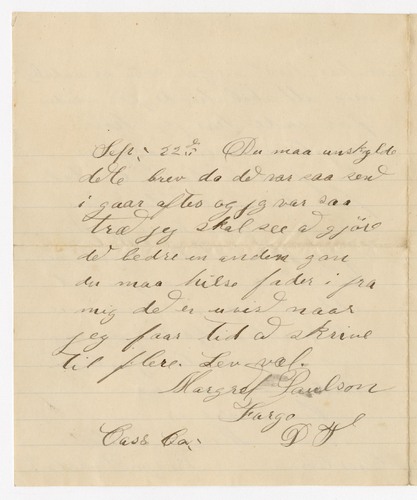 Sept; 22d Du maa unskylde
dete brev da de var saa sent
i gaar aften og jg var saa
træd jeg skal see a gjöre
de bedre en anden gan
du maa hilse fader i fra
mig de er uvis naar
jeg faar tid a skrive
til flere. Lev vel.
Margret Paulson
Fargo
Cass Co; D T